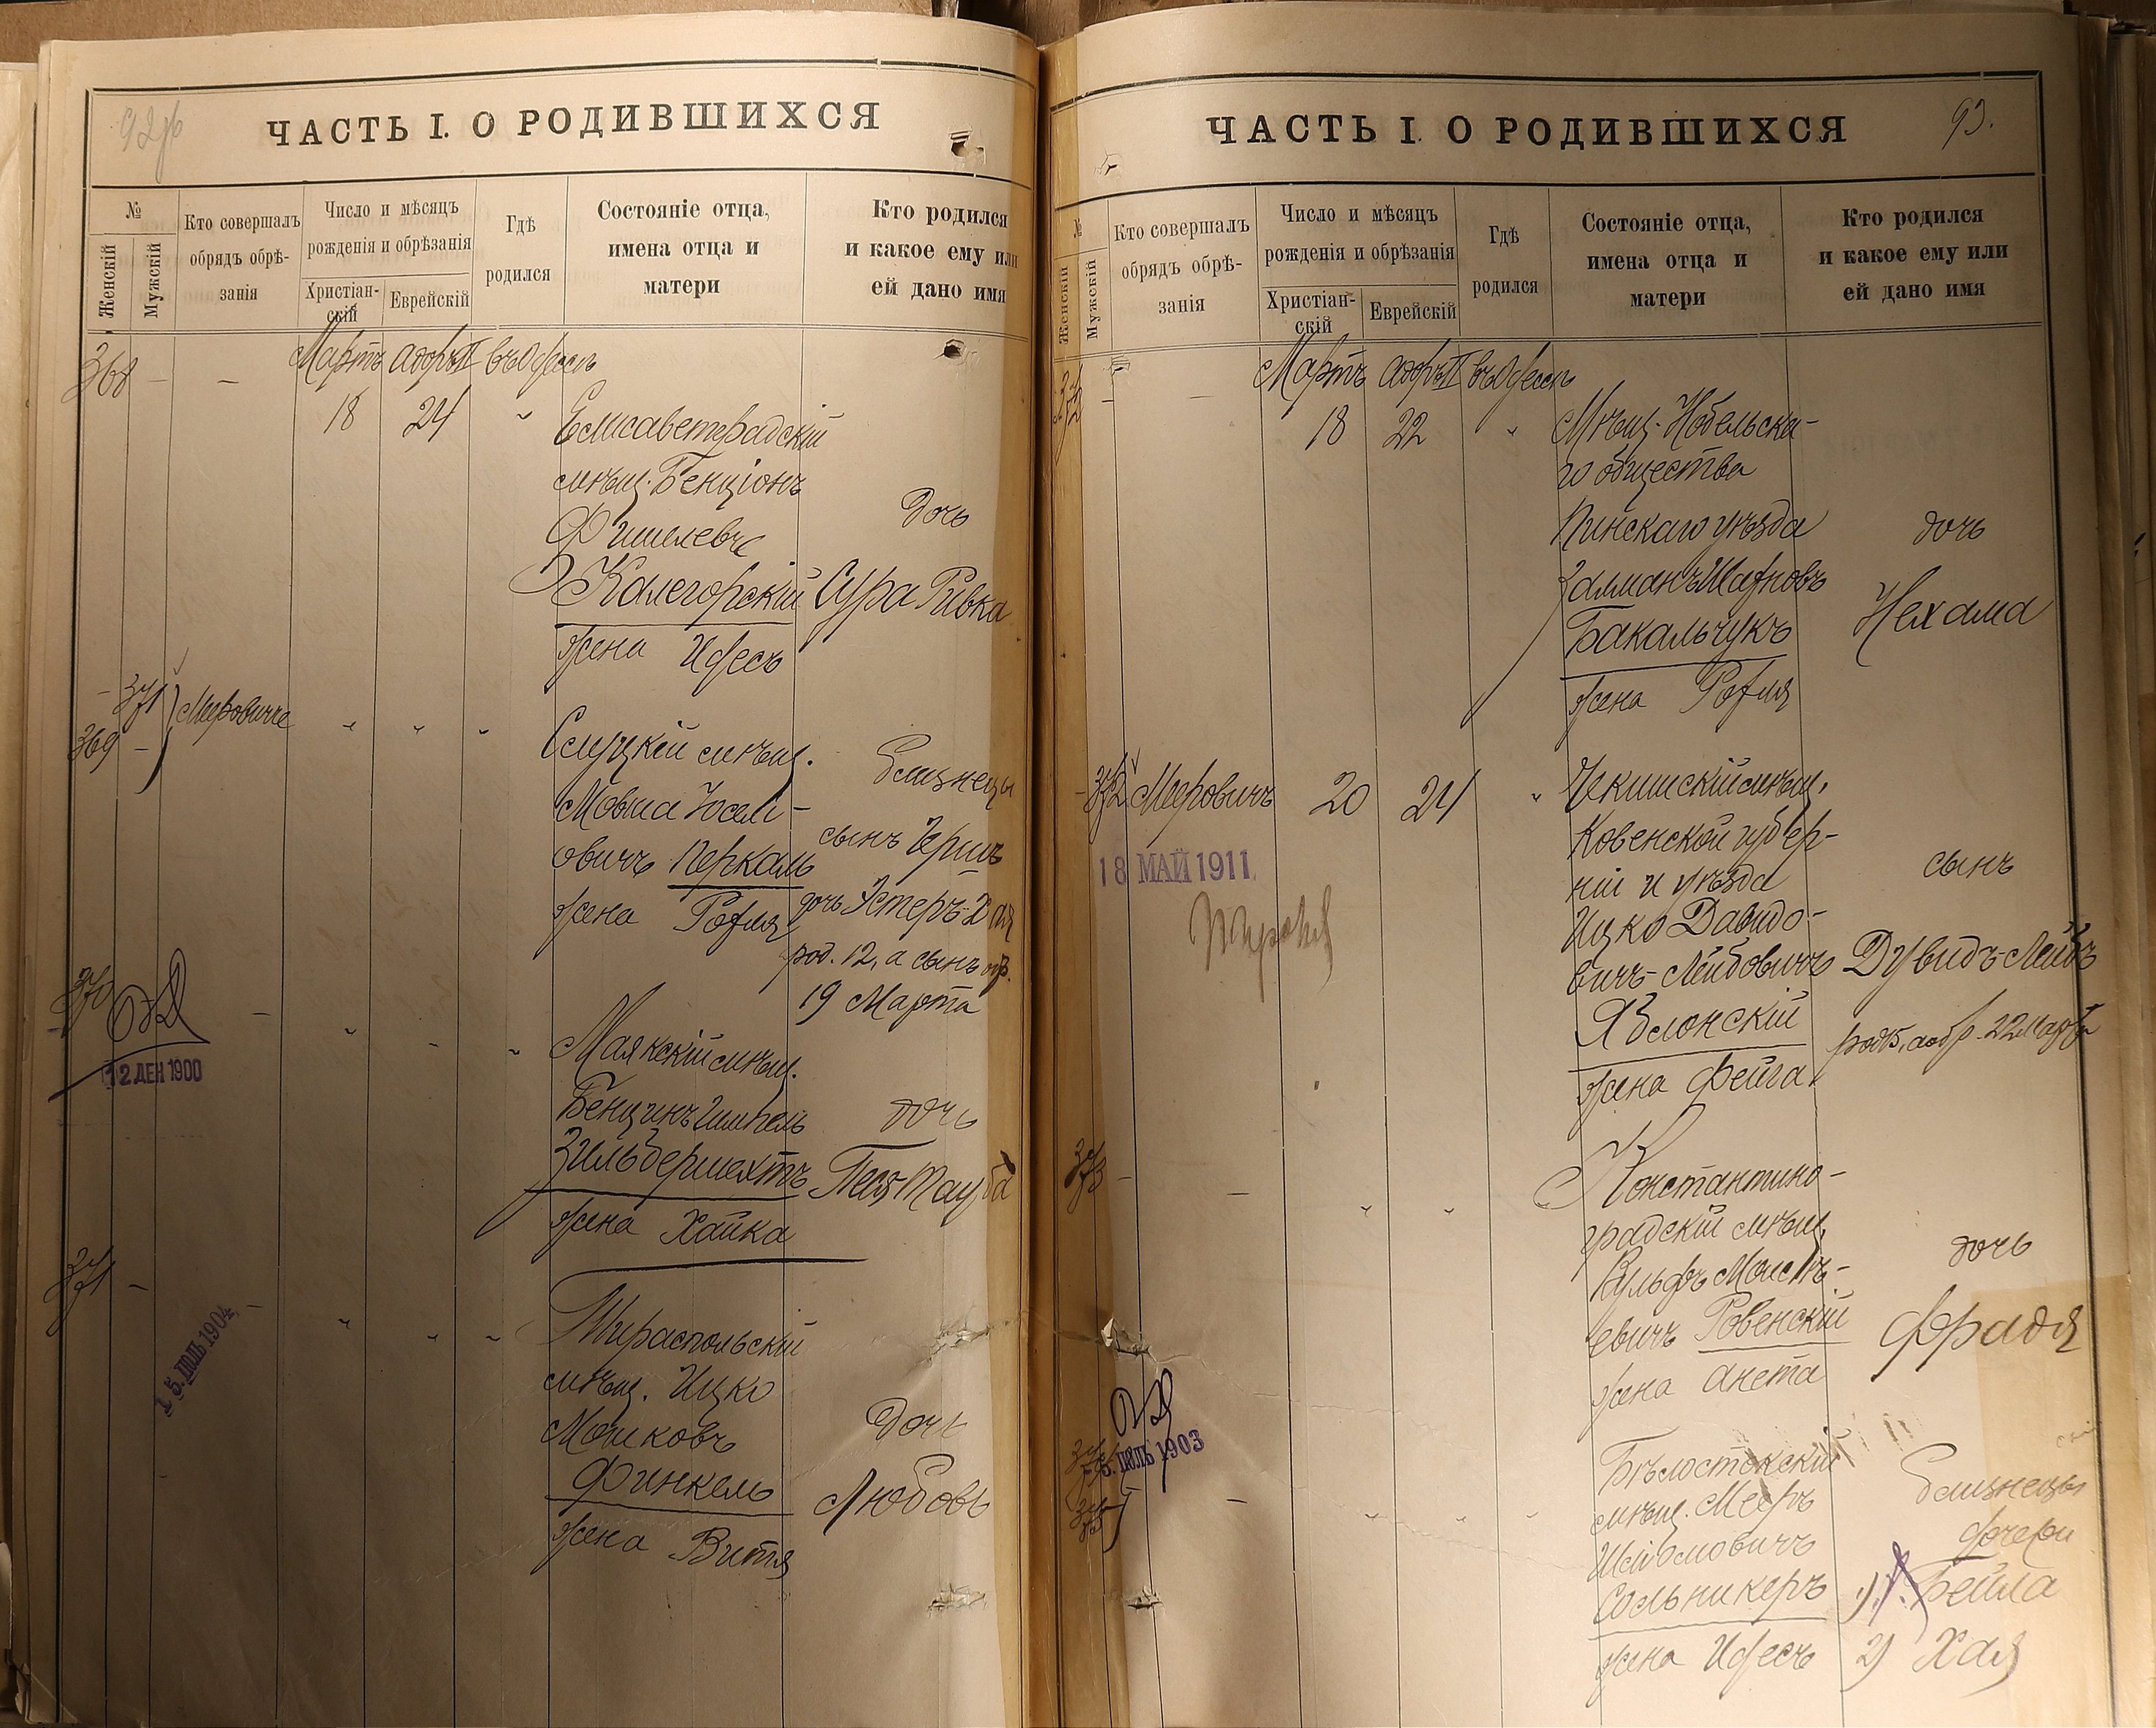 92об
ЧАСТЬ I. О РОДИВШИХСЯ
№
Женскій
Мужскій
Кто совершалъ
обрядъ обрѣ-
занія
Число и мѣсяцъ
рожденія и обрѣзанія
Христіан-
скій
Еврейскій
Гдѣ
родился
Состояніе отца,
имена отца и
матери
Кто родился
и какое ему или
ей дано имя
368 — — Мартъ Адаръ II въ Одессѣ
18 24 " Елисаветградскій
мѣщ. Бенціонъ
Фишелевъ дочь
Калегорскій Сура Ривка
жена Идесъ
- 371 Мееровичъ
369 - " " " Слуцкій мѣщ. близнецы
Мовша Юсели-
овичъ Перкаль сынъ Гершъ
жена Рохля дочь Эстеръ-Хая
род. 12, а сынъ обр.
19 Марта
370 — " " " Маякскій мѣщ.
12 ДЕК 1900
Бенцинъ Гимпель дочь
Зильбершехтъ Песя Тауба
жена Хайка
371 - — " " " Тираспольскій
15. ІЮЛЬ 1904
мѣщ. Ицко
Мошковъ дочь
Финкель Любовь
жена Витя
93.
ЧАСТЬ I. О РОДИВШИХСЯ
№
Женскій
Мужскій
Кто совершалъ
обрядъ обрѣ-
занія
Число и мѣсяцъ
рожденія и обрѣзанія
Христіан-
скій
Еврейскій
Гдѣ
родился
Состояніе отца,
имена отца и
матери
Кто родился
и какое ему или
ей дано имя
372 — — Мартъ Адаръ II въ Одессѣ
18 22 " Мѣщ. Нобельска-
го общества
Пинскаго уѣзда дочь
Залманъ
Бакальчукъ Нехама
жена Рохля
- 372 Мееровичъ 20 24 " Чекишскій мѣщ.
18 МАЙ 1911
Ковенской губер-
ніи и уѣзда сынъ
Ицко Давидо-
вичъ-Лейбовичъ Дувидъ-Лейбъ
Яблонскій род 15, а обр. 22 Марта
жена Фейга
373 - — " " Константино-
градскій мѣщ.
Вульфъ Моисѣ- дочь
евичъ Ровенскій Фрадя
жена Анета
374 Бѣлостокскій близнецы
5. ІЮЛЬ 1903
375 — " " " мѣщ. Мееръ дочери
Шліомовичъ
Сольникеръ 1) Бейла
жена Идесъ 2) Хая